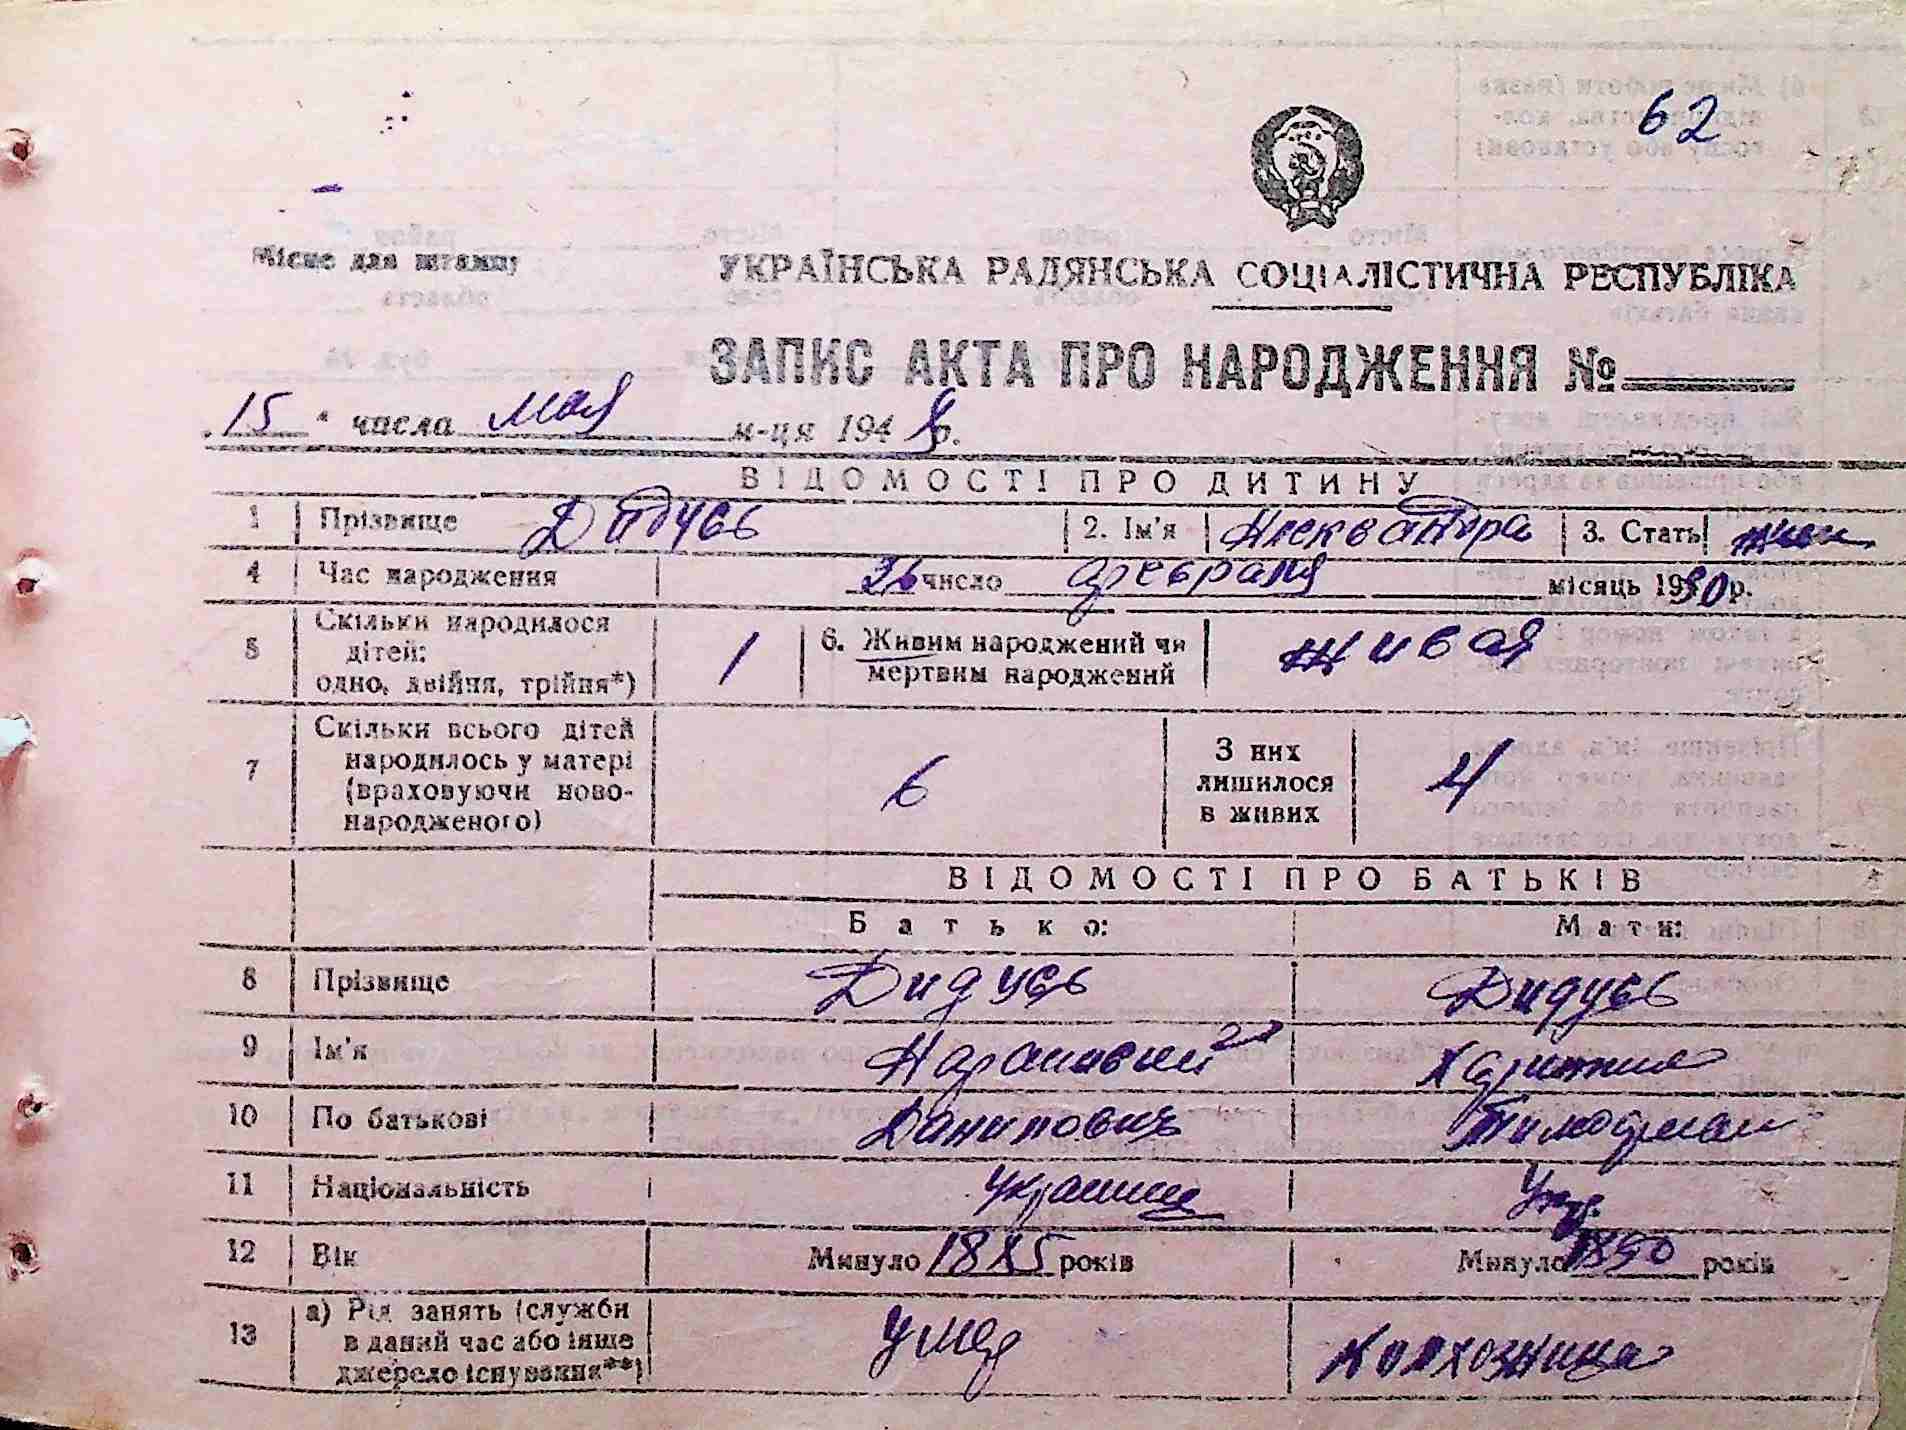 62
Місце для штампу
УКРАЇНСЬКА РАДЯНСЬКА СОЦІАЛІСТИЧНА РЕСПУБЛІКА
ЗАПИС АКТА ПРО НАРОДЖЕННЯ №
„15" числа мая м-ця 1948 р.
ВІДОМОСТІ ПРО ДИТИНУ
1 Прізвище Дидусь 2. Ім'я Александра 3. Стать жен.
4 Час народження 26 число февраля місяць 1930 р.
5 Скільки народилося дітей: одно, двійня, трійня*) 1 6. Живим народжений чи мертвим народжений живая
7 Скільки всього дітей народилось у матері (враховуючи новонародженого) 6 З них лишилося в живих 4
ВІДОМОСТІ ПРО БАТЬКІВ
Батько: Мати:
8 Прізвище Дидусь Дидусь
9 Ім'я
10 По батькові Данилович
11 Національність украинец Укр.
12 Вік Минуло 1885 років Минуло 1890 років
13 а) Рід занять (служби в даний час або інше джерело існування**) умер колхозница